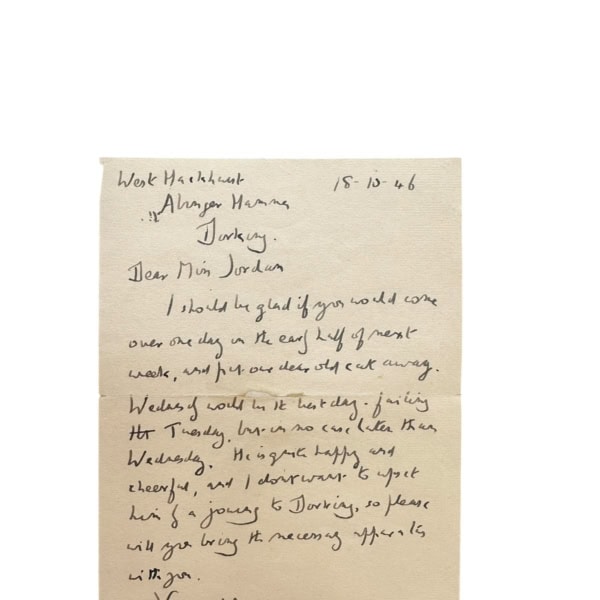 West Hackhurst 18-10-46
Abinger Hammer
Dorking.
Dear Miss Jordan
I should be glad if you would come
over one day in the early half of next
week, and put our dear old cat away.
Wednesday would be the best day - failing
tht Tuesday, but in no case later than
Wednesday. He is quite happy and
cheerful, and I don't want to upset
him by a journey to Dorking, so please
will you bring the necessary apparatus
with you.